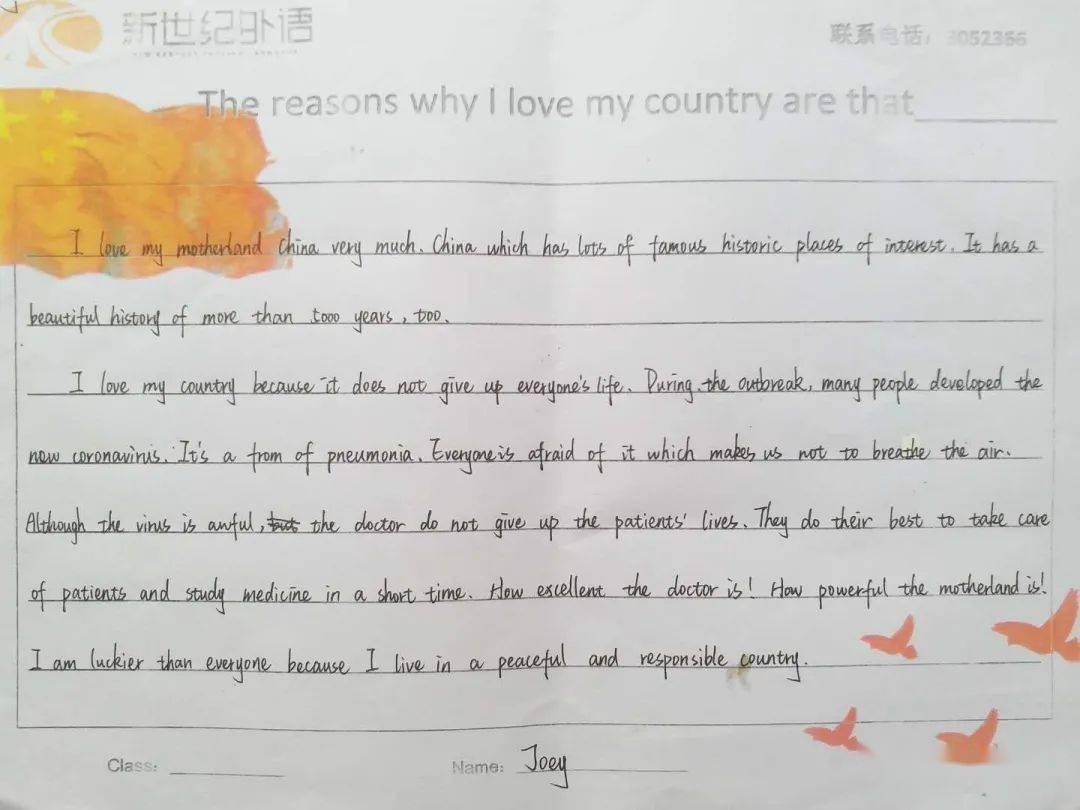 新世纪外语
联系电话：3052366
The reasons why I love my country are that
I love my motherland China very much. China which has lots of famous historic places of interest. It has a
beautiful history of more than 5000 years, too.
I love my country because it does not give up everyone's life. During the outbreak, many people developed the
new coronavirus. It's a from of pneumonia. Everyone is afraid of it which makes us not to breathe the air.
Although the virus is awful, but the doctor do not give up the patients' lives. They do their best to take care
of patients and study medicine in a short time. How excellent the doctor is! How powerful the motherland is!
I am luckier than everyone because I live in a peaceful and responsible country.
Class:
Name: Joey